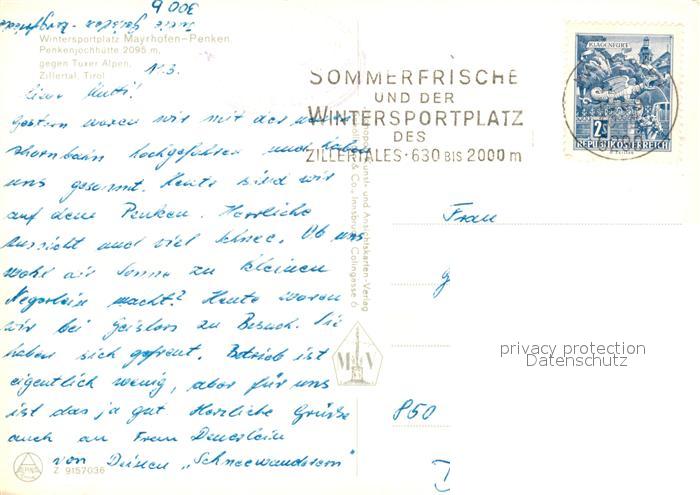 300 b
Wintersportplatz Mayrhofen-Penken
Penkenjochhütte 2095 m,
gegen Tuxer Alpen,
Zillertal, Tirol
Liebe Mutti!
Gestern waren wir mit der
hochgefahren und haben
uns gesonnt. Heute sind wir
auf dem Penken. Herrliche
Aussicht und viel Schnee. Ob uns
wohl die Sonne zu kleinen
Negerlein macht? Heute waren
wir bei Geislers zu Besuch. Sie
haben sich gefreut. Betrieb ist
eigentlich wenig, aber für uns
ist das ja gut. Herzliche Grüße
auch an Frau
von Deinen „Schneewanderern“
Z 9157036
SOMMERFRISCHE
UND DER
WINTERSPORTPLATZ
DES
ZILLERTALES · 630 BIS 2000 m
KLAGENFURT
2 S
REPUBLIK ÖSTERREICH
Kunst- und Ansichtskarten-Verlag
& Co., Innsbruck, Colingasse 6
M V
Frau
850
privacy protection
Datenschutz